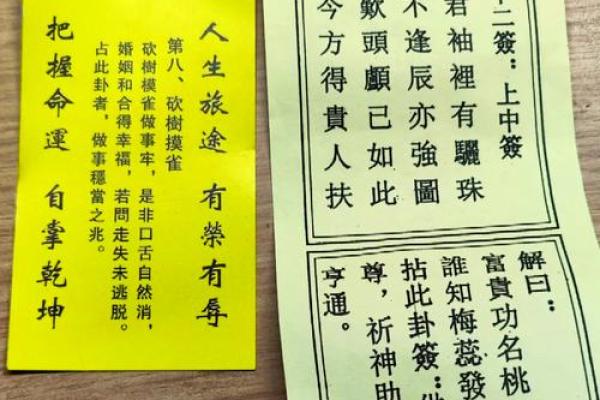 人生旅途 有榮有辱
第八、砍樹摸雀
砍樹模雀做事牢，是非口舌自然消，
婚姻和合得幸福，若問走失未逃脫。
占此卦者，做事穩當之兆。
把握命運 自掌乾坤
十二簽：上中簽
君袖裡有驪珠
不逢辰亦強圖
歎頭顱已如此
今方得貴人扶
解曰：
富貴功名桃
誰知梅蕊發
拈此卦簽：
尊，祈神助
亨通。